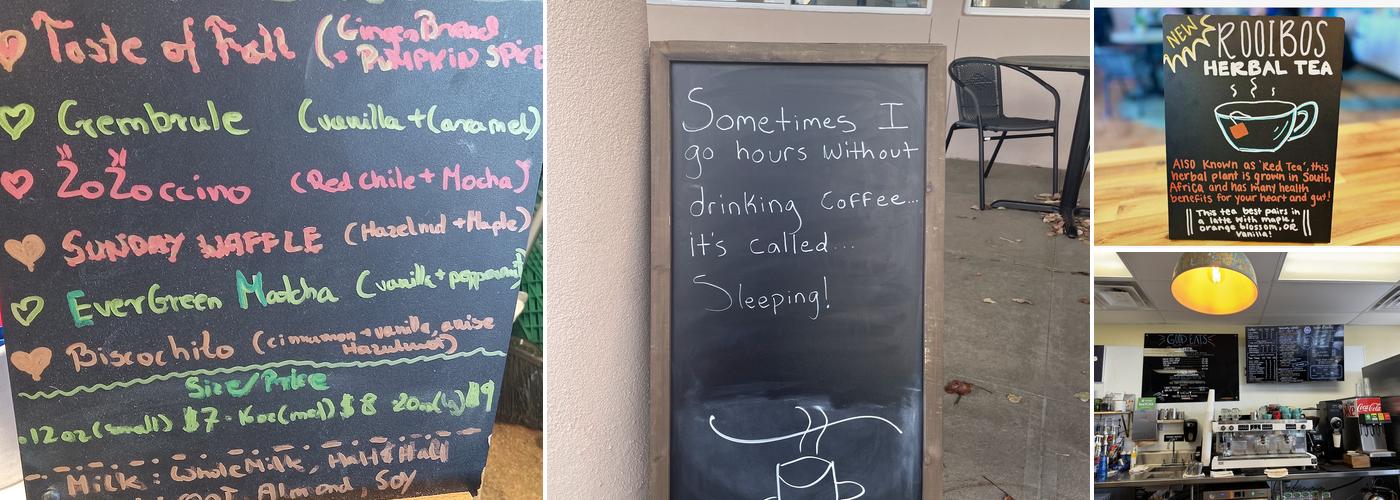 Taste of Fall (GingerBread
+ PUMPKIN SPICE
Crembrule (vanilla + Caramel)
ZoZoccino (Red chile + Mocha)
SUNDAY WAFFLE (Hazelnut + Maple)
EverGreen Matcha (vanilla + peppermint)
Biscochito (cinnamon + vanilla, anise
Hazelnut)
Size/Price
12 oz (small) $7 - 20oz $9
Milk: Whole Milk, Half & Half
OAT, Almond, Soy
Sometimes I
go hours without
drinking coffee...
it's called...
Sleeping!
NEW
ROOIBOS
HERBAL TEA
ALSO Known as 'Red Tea', this
herbal plant is grown in South
Africa and has many health
benefits for your heart and gut!
This tea best pairs in
a latte with maple,
orange blossom, OR
vanilla!
GOOD EATS
Coca-Cola